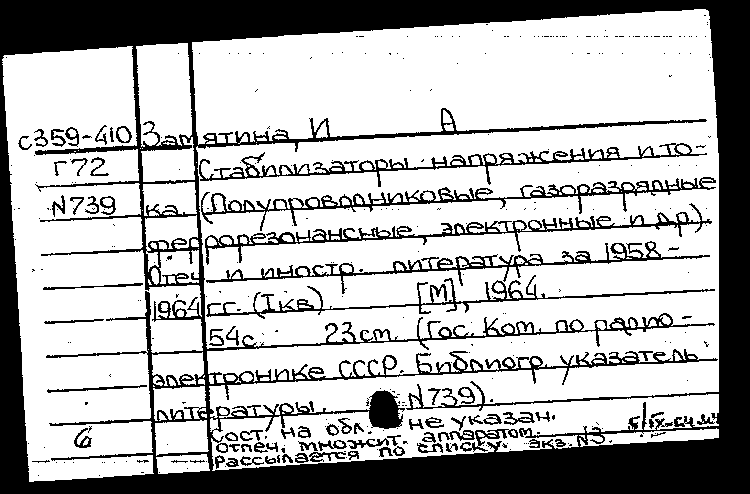 с359-410 Замятина, И А
Г72 Стабилизаторы напряжения и то-
N739 ка. (Полупроводниковые, газоразрядные
феррорезонансные, электронные и др.).
Отеч и иностр. литература за 1958-
1964 гг. (I кв) [М], 1964.
54с. 23см. (Гос. Ком. по радио-
электронике СССР. Библиогр. указатель
литературы. N739).
6 Сост. на обл. не указан.
Отпеч. множит. аппаратом.
Рассылается по списку. экз. N3.